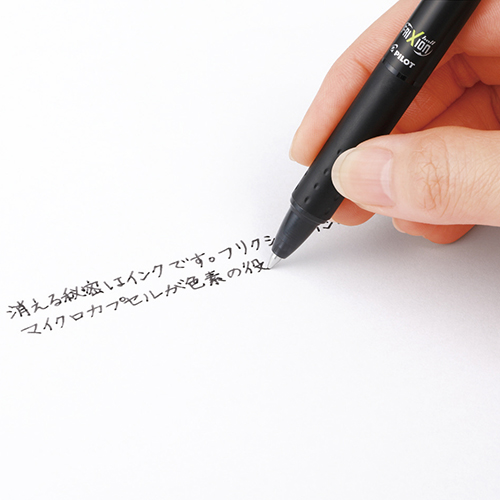 FriXion
PILOT
消える秘密はインクです。フリクシ
マイクロカプセルが色素の役